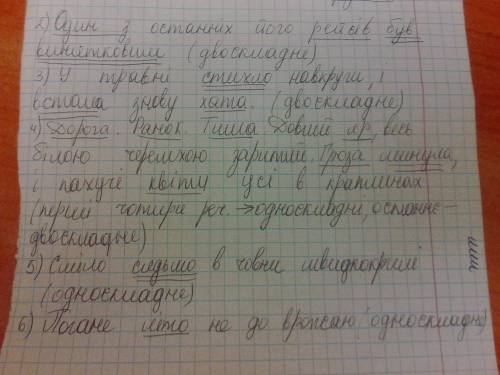 2) Один з останних його рейсів був
винятковим (двоскладне)
3) У травні стихло навкруги, і
встала знову хата. (двоскладне)
4) Дорога. Ранок. Тиша. Довгий яр, весь
білою черемхою заритий. Гроза минула,
і пахучі квіти усі в краплинах
(перші чотири реч. → односкладні, останнє -
двоскладне)
5) Сміло сядьмо в човни швидкокрилі
(односкладне)
6) Погане літо не до врожаю (односкладне)